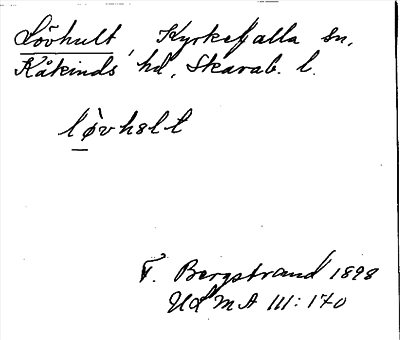 Lövhult, Kyrkefalla sn,
Kåkinds hd, Skarab. l.
lø̀vhult
T. Bergstrand 1898
Ud m A III: 170